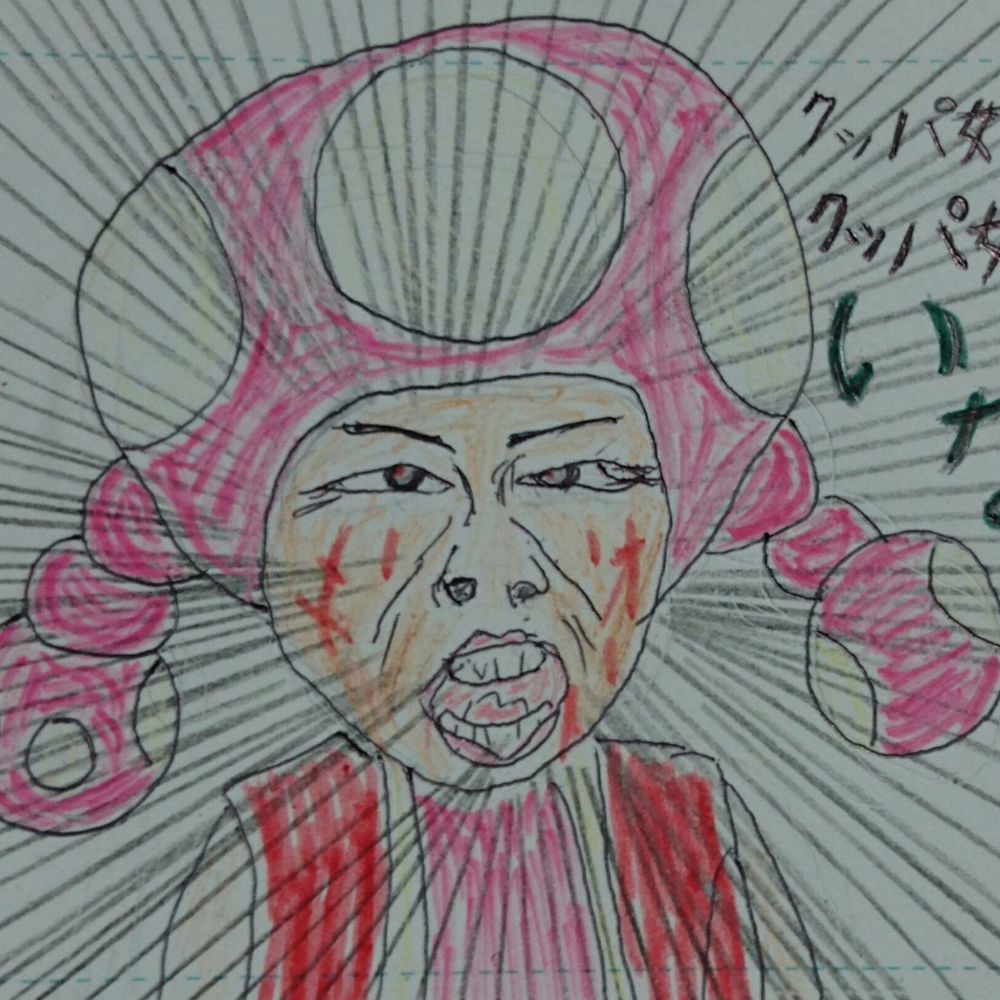 クッパ女
クッパ女
い